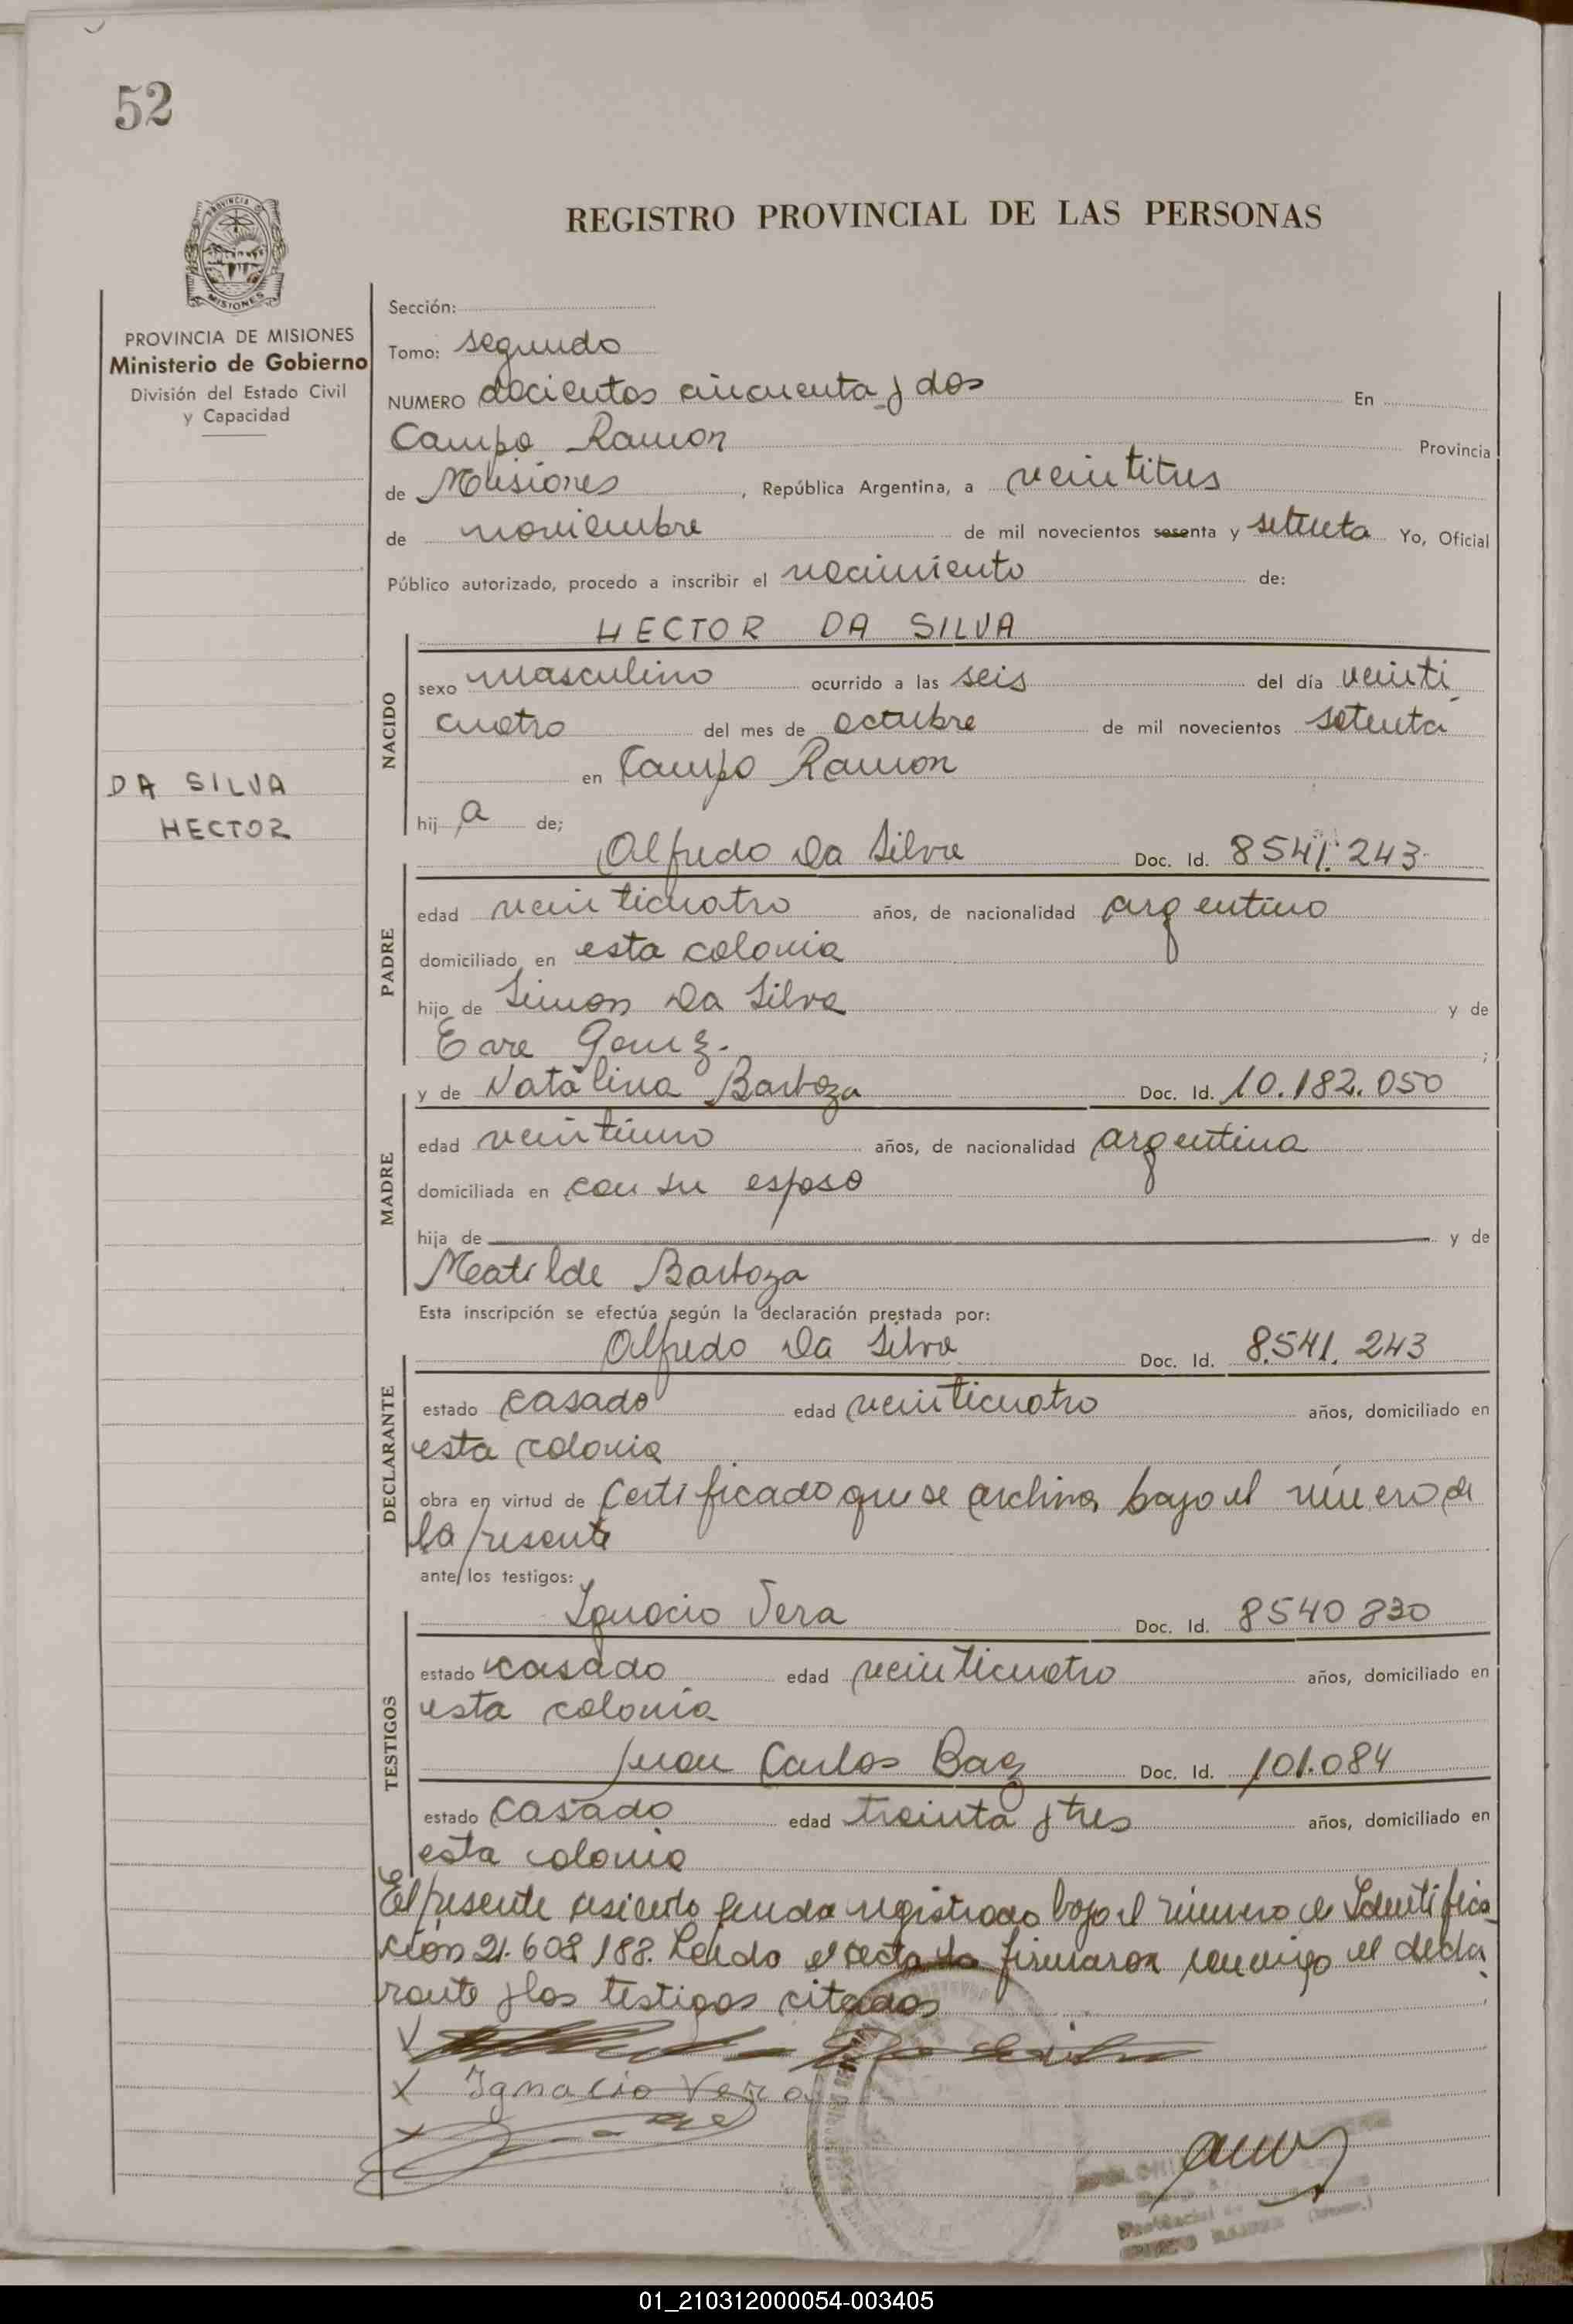 52
PROVINCIA
MISIONES
PROVINCIA DE MISIONES
Ministerio de Gobierno
División del Estado Civil
y Capacidad
DA SILVA
HECTOR
REGISTRO PROVINCIAL DE LAS PERSONAS
Sección:
Tomo: segundo
NUMERO docientos cincuenta y dos En
Campo Ramon Provincia
de Misiones, República Argentina, a veintitres
de noviembre de mil novecientos sesenta y setenta Yo, Oficial
Público autorizado, procedo a inscribir el nacimiento de:
HECTOR DA SILVA
NACIDO
sexo masculino ocurrido a las seis del día veinti
cuatro del mes de octubre de mil novecientos setenta
en Campo Ramon
hij a de;
Alfredo Da Silva Doc. Id. 8541.243
PADRE
edad veinticuatro años, de nacionalidad argentino
domiciliado en esta colonia
hijo de Simon Da Silva y de
Eva ;
y de Natalina Barboza Doc. Id. 10.182.050
MADRE
edad veintiuno años, de nacionalidad argentina
domiciliada en con su esposo
hija de y de
Matilde Barboza
Esta inscripción se efectúa según la declaración prestada por:
Alfredo Da Silva Doc. Id. 8.541.243
DECLARANTE
estado casado edad veinticuatro años, domiciliado en
esta colonia
obra en virtud de Certificado que se archiva bajo el número de
la presente
ante los testigos:
Ignacio Vera Doc. Id. 8540830
TESTIGOS
estado casado edad veinticuatro años, domiciliado en
esta colonia
Juan Carlos Baez Doc. Id. 101.084
estado casado edad treinta y tres años, domiciliado en
esta colonia
El presente asiento queda registrado bajo el número de Identifica
ción 21.608.188. Leida el acta la firmaron conmigo el decla
rante y los testigos citados
X
X Ignacio Vera
X
01_210312000054-003405